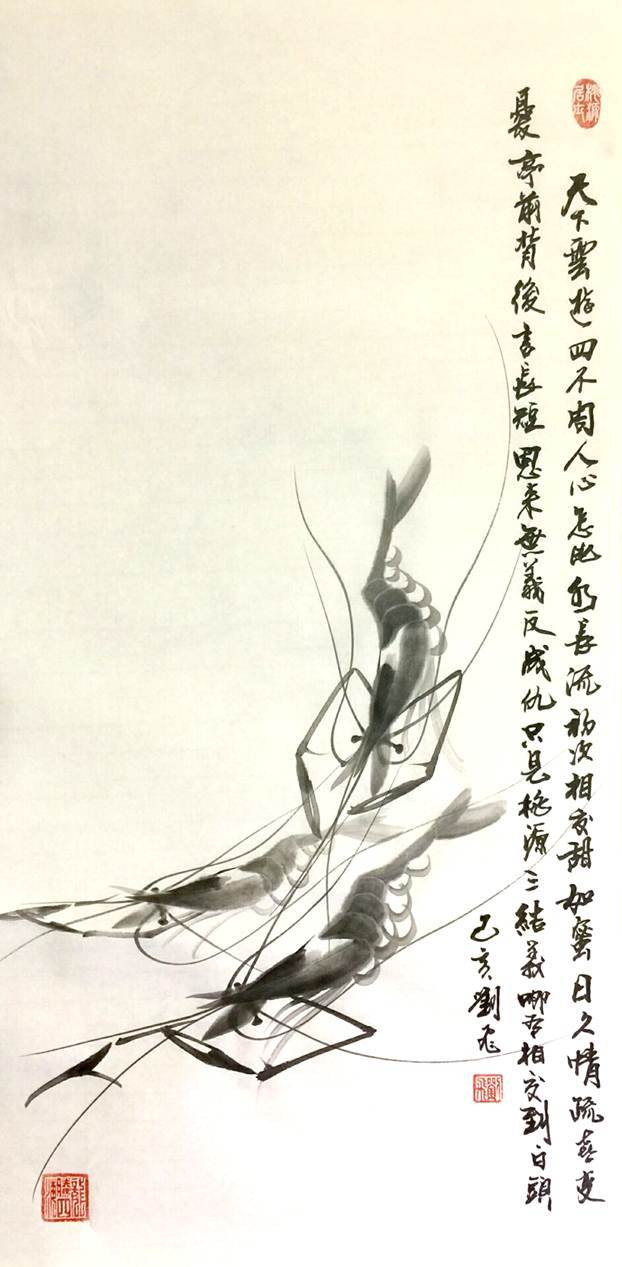 桃源居士
天下雲遊四不周人心怎比水長流初次相交甜如蜜日久情疏喜變
憂亭前背後言長短恩来無義反成仇只見桃源三結義哪有相交到白頭
己亥劉飛
龍騰四海